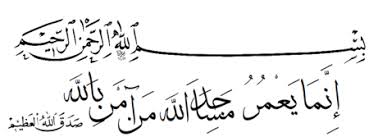 بِسْمِ اللهِ الرَّحْمٰنِ الرَّحِيْمِ
إِنَّمَا يَعْمُرُ مَسَاجِدَ اللهِ مَنْ آمَنَ بِاللهِ صَدَقَ اللهُ العَظِيْمُ